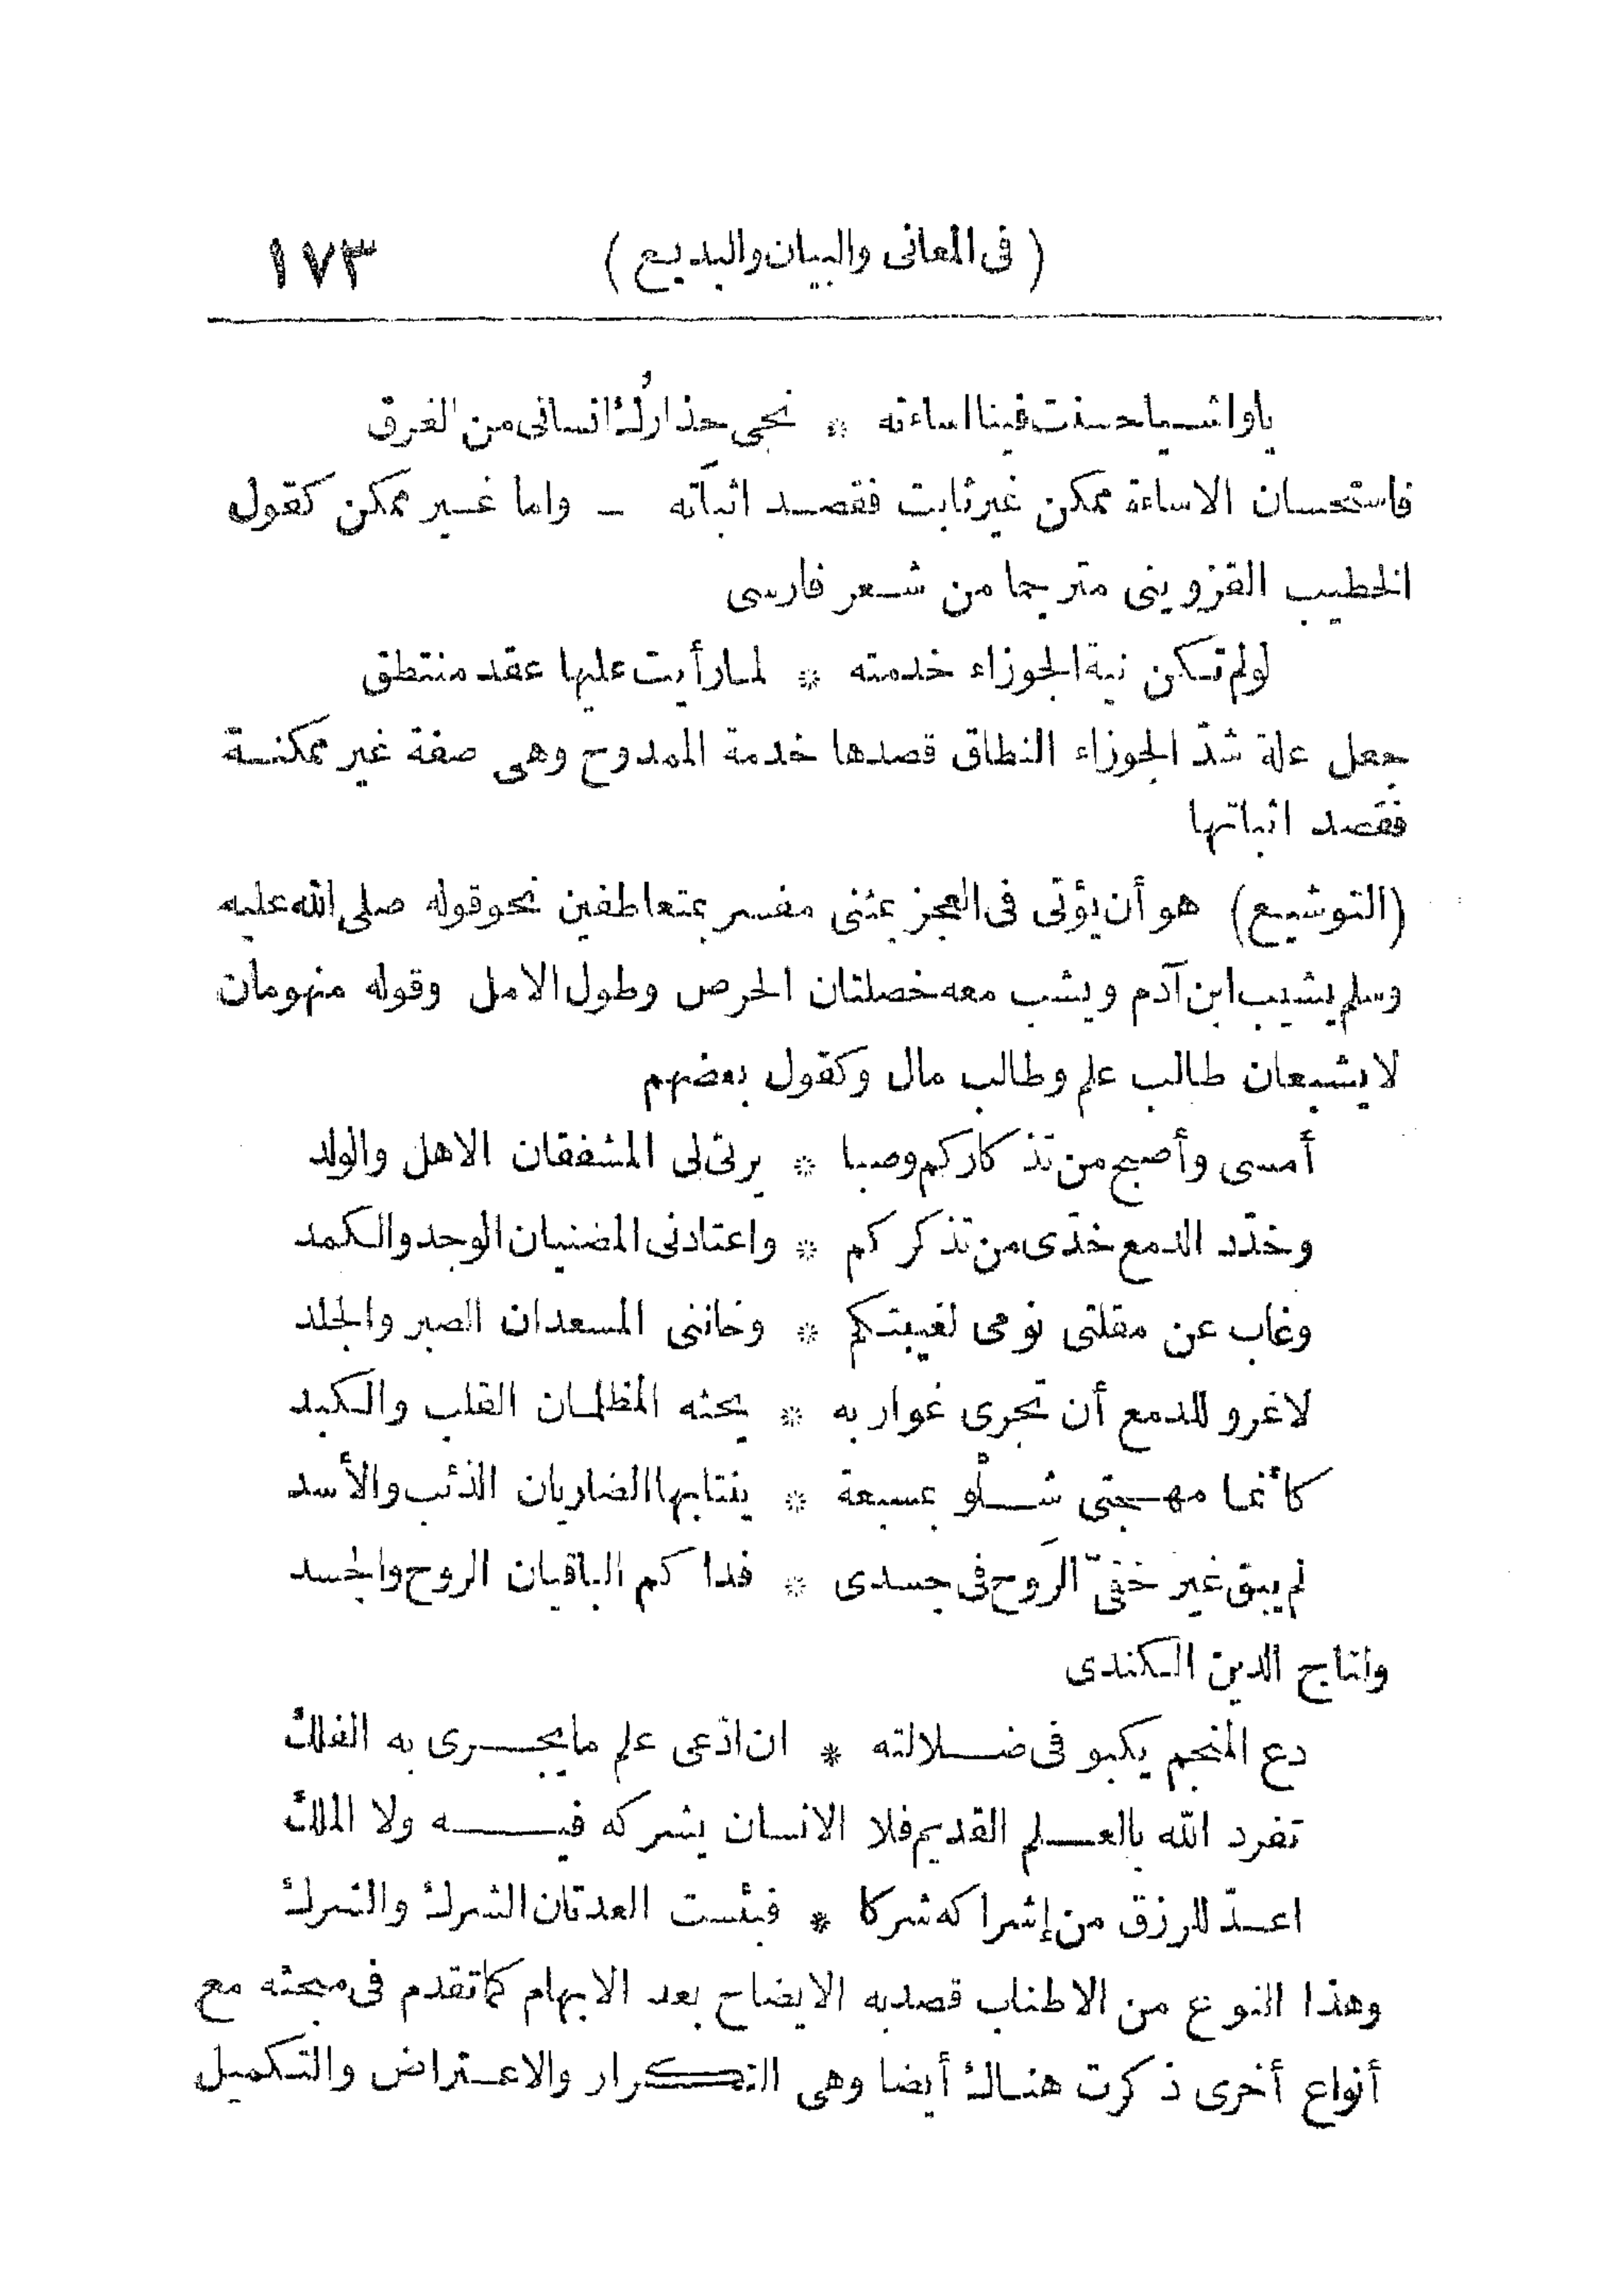 (فى المعانى والبيان والبديع) ١٧٣
ياواشيا حسنت فينا اساءته * نجى حذارُك انسانى من الغرق
فاستحسان الاساءة ممكن غير ثابت فقصد اثباته ـ واما غير ممكن كقول
الخطيب القزوينى مترجما من شعر فارسى
لولم تكن نية الجوزاء خدمته * لما رأيت عليها عقد منتطق
جعل علة شدّ الجوزاء النطاق قصدها خدمة الممدوح وهى صفة غير ممكنة
فقصد اثباتها
(التوشيع) هو أن يؤتى فى العجز بمثنى مفسر بمتعاطفين نحو قوله صلى الله عليه
وسلم يشيب ابن آدم ويشب معه خصلتان الحرص وطول الامل وقوله منهومان
لا يشبعان طالب علم وطالب مال وكقول بعضهم
أمسى وأصبح من تذكاركم وصبا * يرثى لى المشفقان الاهل والولد
وخدّد الدمع خدّى من تذكركم * واعتادنى المضنيان الوجد والكمد
وغاب عن مقلتى نومى لغيبتكم * وخاننى المسعدان الصبر والجلد
لاغرو للدمع أن تجرى غواربه * يحثه المظلمان القلب والكبد
كأنما مهجتى شلْو بمسبعة * ينتابها الضاريان الذئب والأسد
لم يبق غير خفىّ الرَوح فى جسدى * فداكم الباقيان الروح والجسد
ولتاج الدين الكندى
دع المنجم يكبو فى ضلالته * ان ادّعى علم ما يجرى به الفلك
تفرد الله بالعلم القديم فلا الانسان يشركه فيه ولا الملك
اعدّ للرزق من إشراكه شركا * فبئست العدتان الشرك والشرك
وهذا النوع من الاطناب قصد به الايضاح بعد الابهام كما تقدم فى مبحثه مع
أنواع أخرى ذكرت هناك أيضا وهى التكرار والاعتراض والتكميل